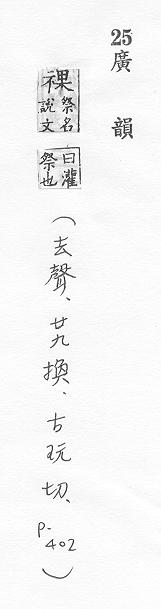 25廣韻
祼祭名說文曰灌祭也(去聲、廿九換、古玩切、P-402)